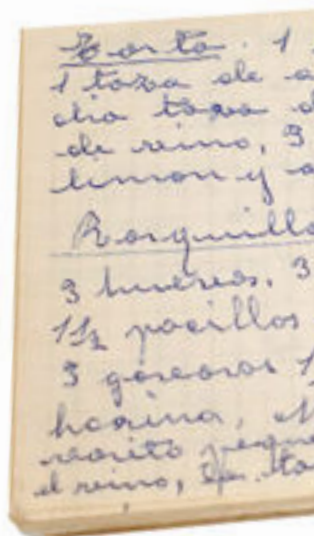 Torta. 1
1 taza de a
dia taza d
de reino, 3
limon y a
Rosquilla
3 huevos, 3
1 1/2 pocillos
3 gaseosas 1
harina,
vasito peque
el reino,